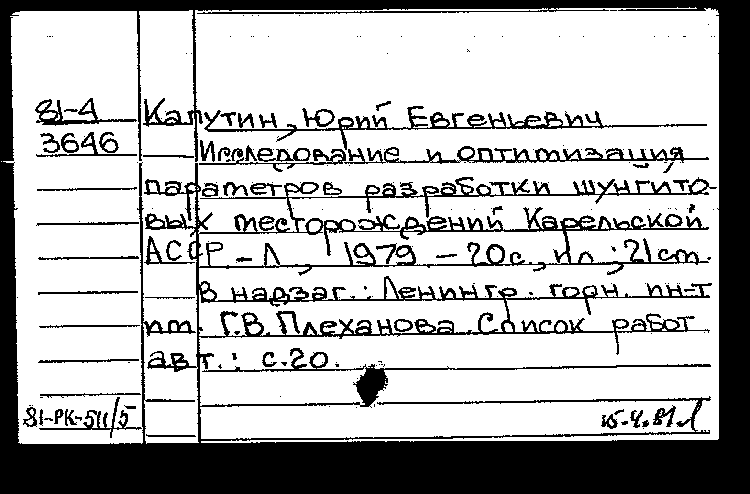 81-4
3646
Капутин, Юрий Евгеньевич
Исследование и оптимизация
параметров разработки шунгито-
вых месторождений Карельской
АССР – Л, 1979 – 20 с., ил ; 21 ст.
В надзаг.: Ленингр. горн. ин-т
им. Г.В. Плеханова. Список работ
авт.: с. 20.
81-РК-511/5
15.4.81 Л